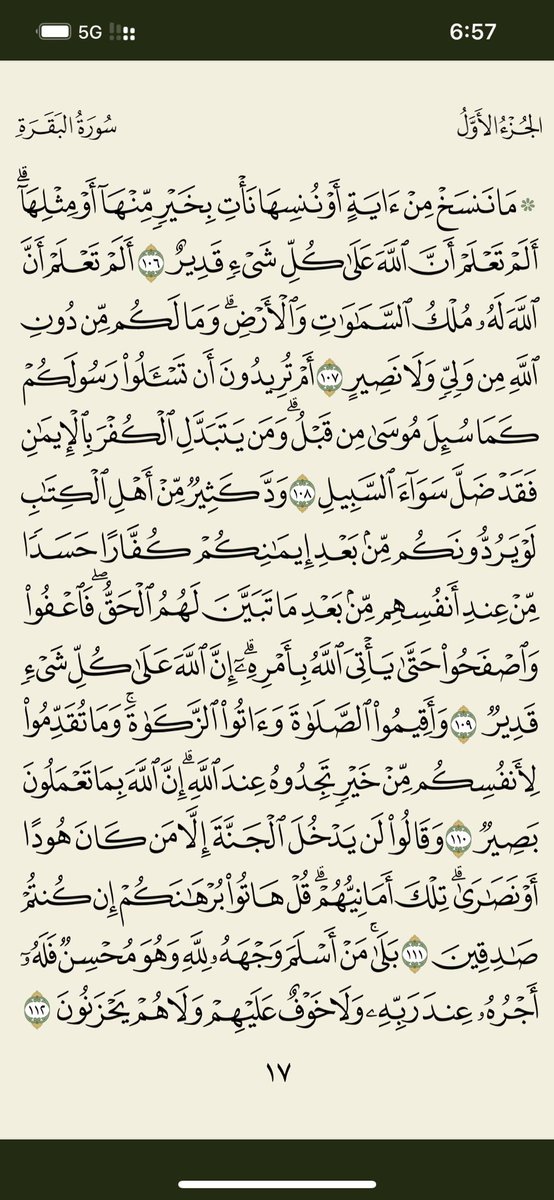 5G 6:57
سُورَةُ البَقَرَةِ الجُزْءُ الأَوَّلُ
۞ مَا نَنسَخْ مِنْ ءَايَةٍ أَوْ نُنسِهَا نَأْتِ بِخَيْرٍ مِّنْهَآ أَوْ مِثْلِهَآۗ
أَلَمْ تَعْلَمْ أَنَّ ٱللَّهَ عَلَىٰ كُلِّ شَىْءٍ قَدِيرٌ ١٠٦ أَلَمْ تَعْلَمْ أَنَّ
ٱللَّهَ لَهُۥ مُلْكُ ٱلسَّمَٰوَٰتِ وَٱلْأَرْضِۗ وَمَا لَكُم مِّن دُونِ
ٱللَّهِ مِن وَلِىٍّ وَلَا نَصِيرٍ ١٠٧ أَمْ تُرِيدُونَ أَن تَسْـَٔلُوا۟ رَسُولَكُمْ
كَمَا سُئِلَ مُوسَىٰ مِن قَبْلُۗ وَمَن يَتَبَدَّلِ ٱلْكُفْرَ بِٱلْإِيمَٰنِ
فَقَدْ ضَلَّ سَوَآءَ ٱلسَّبِيلِ ١٠٨ وَدَّ كَثِيرٌ مِّنْ أَهْلِ ٱلْكِتَٰبِ
لَوْ يَرُدُّونَكُم مِّنۢ بَعْدِ إِيمَٰنِكُمْ كُفَّارًا حَسَدًا
مِّنْ عِندِ أَنفُسِهِم مِّنۢ بَعْدِ مَا تَبَيَّنَ لَهُمُ ٱلْحَقُّۖ فَٱعْفُوا۟
وَٱصْفَحُوا۟ حَتَّىٰ يَأْتِىَ ٱللَّهُ بِأَمْرِهِۦٓۗ إِنَّ ٱللَّهَ عَلَىٰ كُلِّ شَىْءٍ
قَدِيرٌ ١٠٩ وَأَقِيمُوا۟ ٱلصَّلَوٰةَ وَءَاتُوا۟ ٱلزَّكَوٰةَۚ وَمَا تُقَدِّمُوا۟
لِأَنفُسِكُم مِّنْ خَيْرٍ تَجِدُوهُ عِندَ ٱللَّهِۗ إِنَّ ٱللَّهَ بِمَا تَعْمَلُونَ
بَصِيرٌ ١١٠ وَقَالُوا۟ لَن يَدْخُلَ ٱلْجَنَّةَ إِلَّا مَن كَانَ هُودًا
أَوْ نَصَٰرَىٰۗ تِلْكَ أَمَانِيُّهُمْۗ قُلْ هَاتُوا۟ بُرْهَٰنَكُمْ إِن كُنتُمْ
صَٰدِقِينَ ١١١ بَلَىٰۚ مَنْ أَسْلَمَ وَجْهَهُۥ لِلَّهِ وَهُوَ مُحْسِنٌ فَلَهُۥٓ
أَجْرُهُۥ عِندَ رَبِّهِۦ وَلَا خَوْفٌ عَلَيْهِمْ وَلَا هُمْ يَحْزَنُونَ ١١٢
١٧